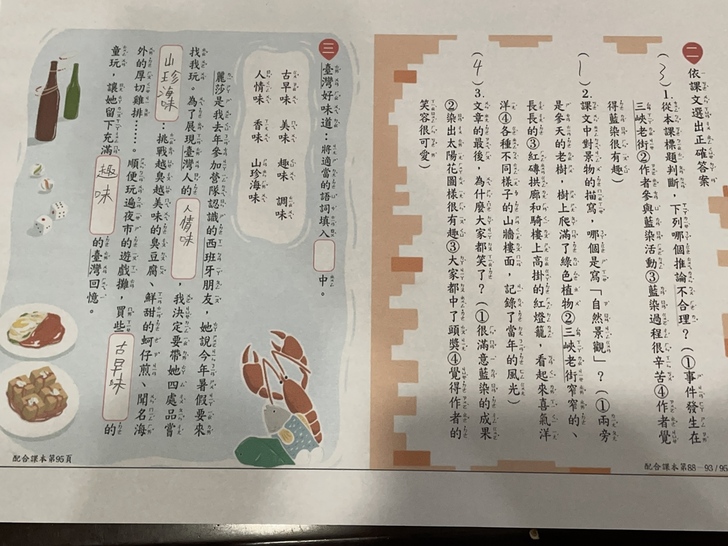 二 依課文選出正確答案
(3)1.從本課標題判斷,下列哪個推論不合理?(①事件發生在
三峽老街②作者參與藍染活動③藍染過程很辛苦④作者覺
得藍染很有趣)
(1)2.課文中對景物的描寫,哪個是寫「自然景觀」?(①兩旁
是參天的老樹,樹上爬滿了綠色植物②三峽老街窄窄的、
長長的③紅磚拱廊和騎樓上高掛的紅燈籠,看起來喜氣洋
洋④各種不同樣子的山牆樓面,記錄了當年的風光)
(4)3.文章的最後,為什麼大家都笑了?(①很滿意藍染的成果
②染出太陽花圖樣很有趣③大家都中了頭獎④覺得作者的
笑容很可愛)
配合課本第88-93/95
三 臺灣好味道:將適當的語詞填入 中。
古早味 美味 趣味 調味
人情味 香味 山珍海味
麗莎是我去年參加營隊認識的西班牙朋友,她說今年暑假要來
找我玩。為了展現臺灣人的 人情味 ,我決定要帶她四處品嘗
山珍海味 :挑戰越臭越美味的臭豆腐、鮮甜的蚵仔煎、聞名海
外的厚切雞排……。順便玩遍夜市的遊戲攤,買些 古早味 的
童玩,讓她留下充滿 趣味 的臺灣回憶。
配合課本第95頁